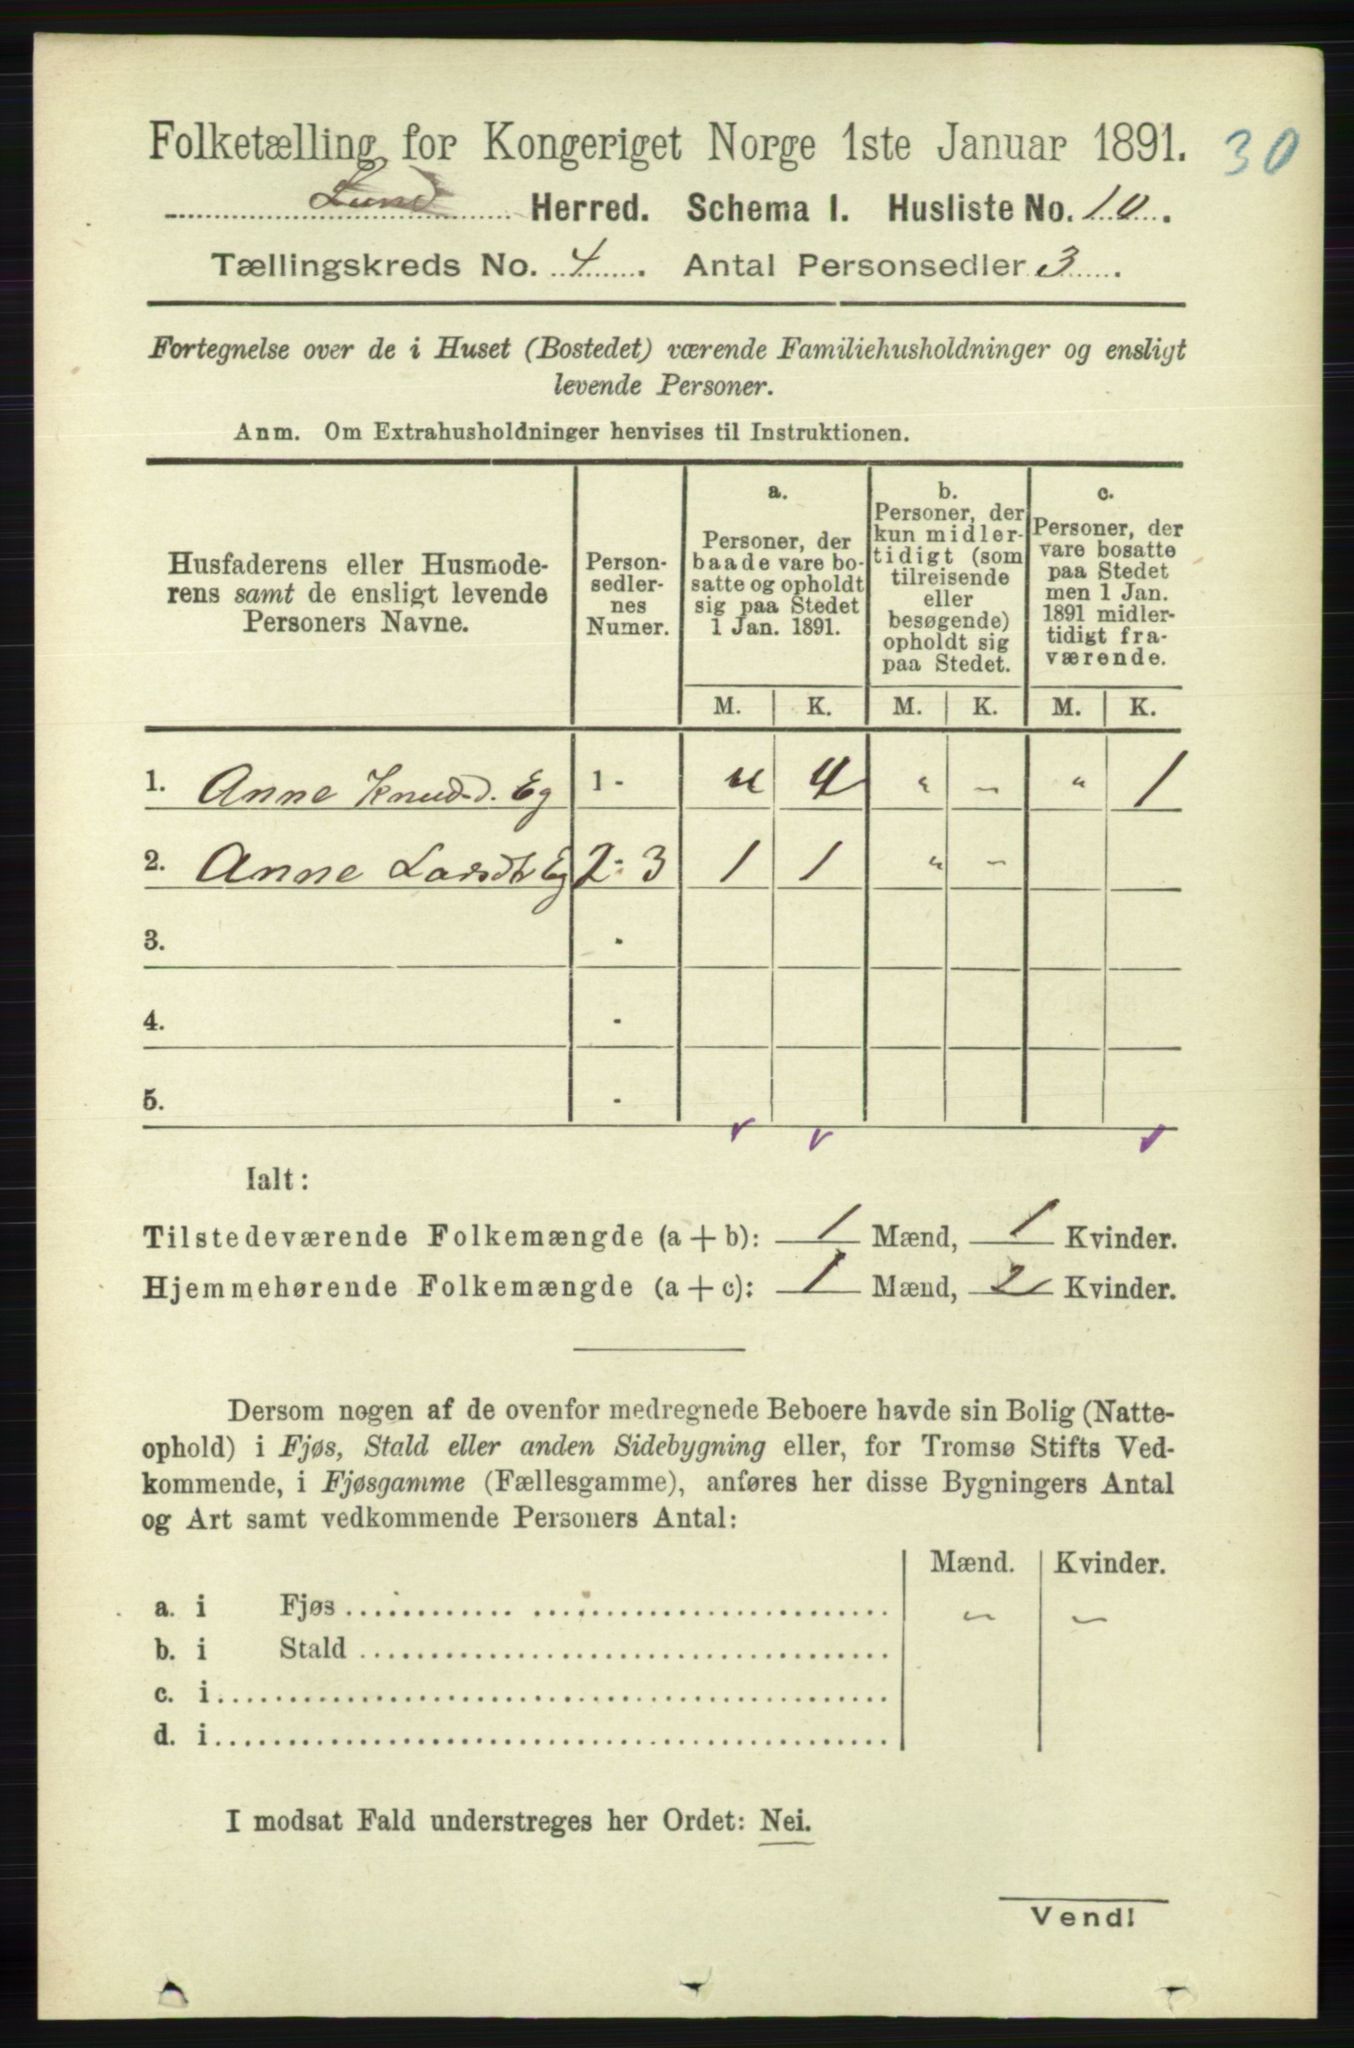 Folketælling for Kongeriget Norge 1ste Januar 1891. 30
Lund Herred. Schema I. Husliste No. 10.
Tællingskreds No. 4. Antal Personsedler 3.
Fortegnelse over de i Huset (Bostedet) værende Familiehusholdninger og ensligt
levende Personer.
Anm. Om Extrahusholdninger henvises til Instruktionen.
Husfaderens eller Husmode-
rens samt de ensligt levende
Personers Navne.
Person-
sedler-
nes
Numer.
a.
Personer, der
baade vare bo-
satte og opholdt
sig paa Stedet
1 Jan. 1891.
b.
Personer, der
kun midler-
tidigt (som
tilreisende
eller
besøgende)
opholdt sig
paa Stedet.
c.
Personer, der
vare bosatte
paa Stedet
men 1 Jan.
1891 midler-
tidigt fra-
værende.
M. K. M. K. M. K.
1. Anne Knudsd. Eg 1 - " " " - " 1
2. Anne Larsdtr Eg 2 - 3 1 1 " -
3. -
4. -
5. -
Ialt:
Tilstedeværende Folkemængde (a + b): 1 Mænd, 1 Kvinder.
Hjemmehørende Folkemængde (a + c): 1 Mænd, 2 Kvinder.
Dersom nogen af de ovenfor medregnede Beboere havde sin Bolig (Natte-
ophold) i Fjøs, Stald eller anden Sidebygning eller, for Tromsø Stifts Ved-
kommende, i Fjøsgamme (Fællesgamme), anføres her disse Bygningers Antal
og Art samt vedkommende Personers Antal:
Mænd. Kvinder.
a. i Fjøs - -
b. i Stald
c. i
d. i
I modsat Fald understreges her Ordet: Nei.
Vend!